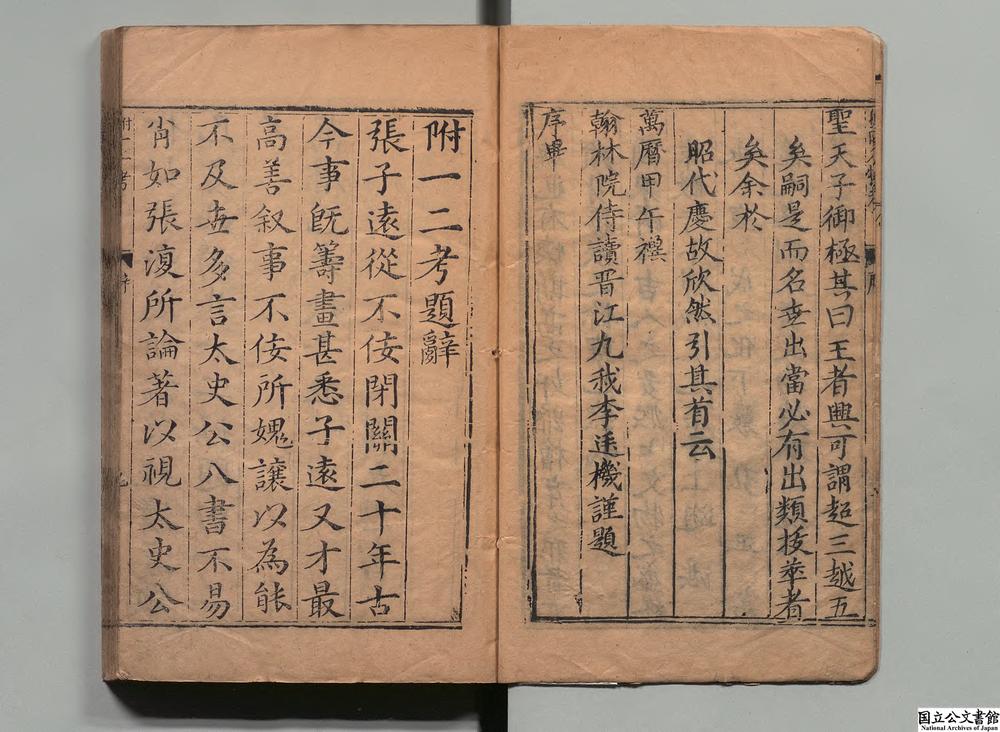 聖天子御極其曰王者興可謂超三越五
矣嗣是而名世出當必有出類拔萃者
矣余於
昭代慶故欣然引其首云
萬曆甲午禩
翰林院侍讀晋江九我李廷機謹題
序畢
附一二考題辭
張子遠從不佞閉關二十年古
今事既籌畫甚悉子遠又才最
高善叙事不佞所媿讓以為能
不及世多言太史公八書不易
肖如張復所論著以視太史公
附一二考
序
国立公文書館
National Archives of Japan